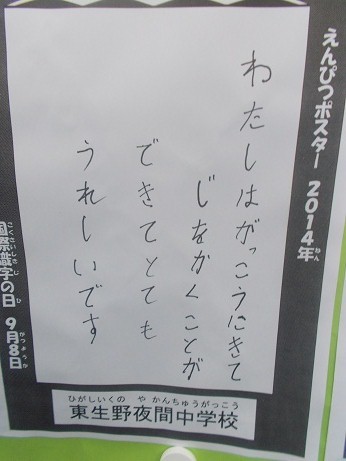 えんぴつポスター 2014年
ねん
わたしはがっこうにきて
じをかくことが
できてとても
うれしいです
こくさいしきじ ひ
国際識字の日 9月8日
がつようか
ひがしいくの や かんちゅうがっこう
東生野夜間中学校